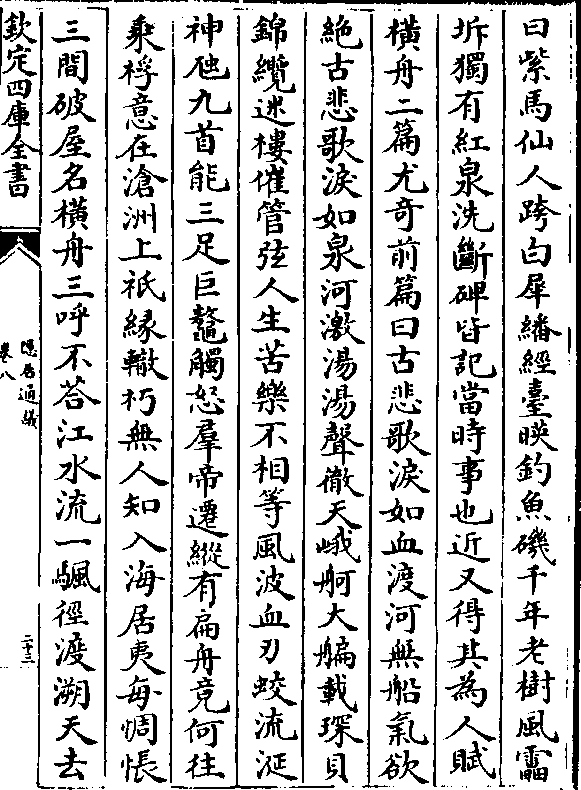 曰紫馬仙人跨白犀繙經臺暎釣魚磯千年老樹風靁
坼獨有紅泉洗斷碑皆記當時事也近又得其為人賦
橫舟二篇尤奇前篇曰古悲歌淚如血渡河無船氣欲
絶古悲歌淚如泉河激湯湯聲徹天峨舸大艑載琛貝
錦纜迷樓催管弦人生苦樂不相等風波血刃蛟流涎
神虺九首能三足巨鼇觸怒羣帝遷縱有扁舟竟何往
乘桴意在滄洲上祇緣轍朽無人知入海居夷每惆悵
三間破屋名橫舟三呼不荅江水流一颿徑渡溯天去
欽定四庫全書
隱居通議
卷八
二十三